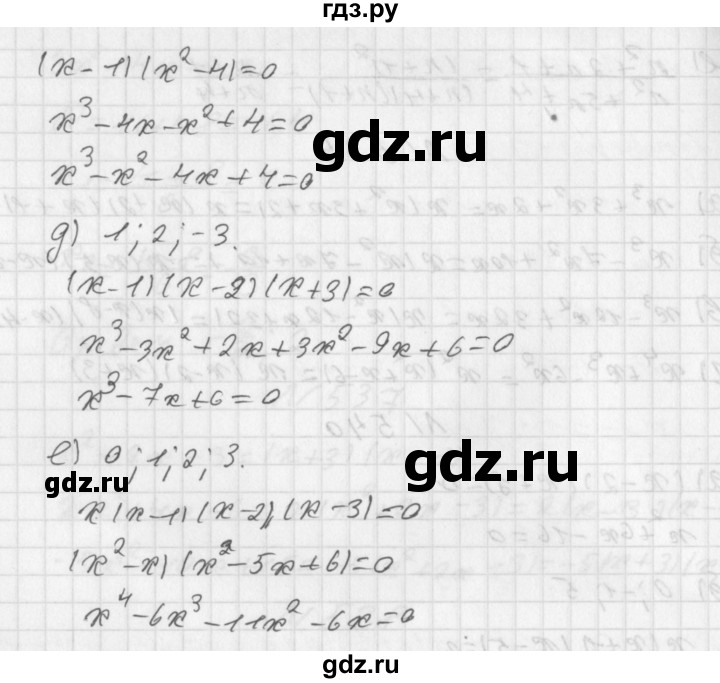 гдз.ру
(x - 1)(x² - 4) = 0
x³ - 4x - x² + 4 = 0
x³ - x² - 4x + 4 = 0
gdz.ru
д) 1; 2; -3.
(x - 1)(x - 2)(x + 3) = 0
x³ - 3x² + 2x + 3x² - 9x + 6 = 0
x³ - 7x + 6 = 0
е) 0; 1; 2; 3.
gdz.ru
gdz.ru
x(x - 1)(x - 2)(x - 3) = 0
(x² - x)(x² - 5x + 6) = 0
x⁴ - 6x³ - 11x² - 6x = 0
gdz.ru